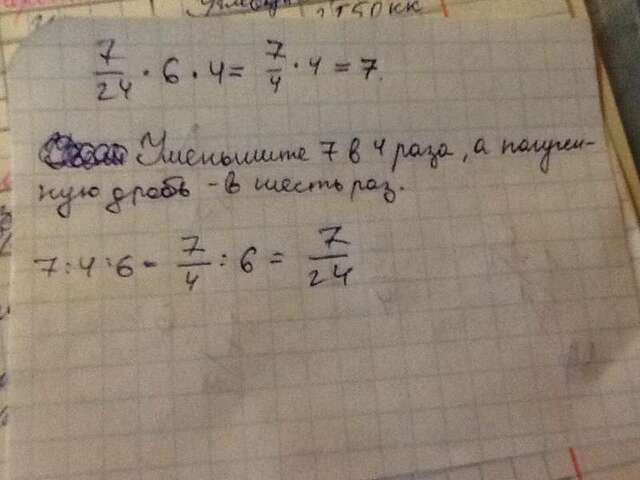 7/24 · 6 · 4 = 7/4 · 4 = 7.
Уменьшите 7 в 4 раза, а получен-
ную дробь - в шесть раз.
7 : 4 : 6 = 7/4 : 6 = 7/24